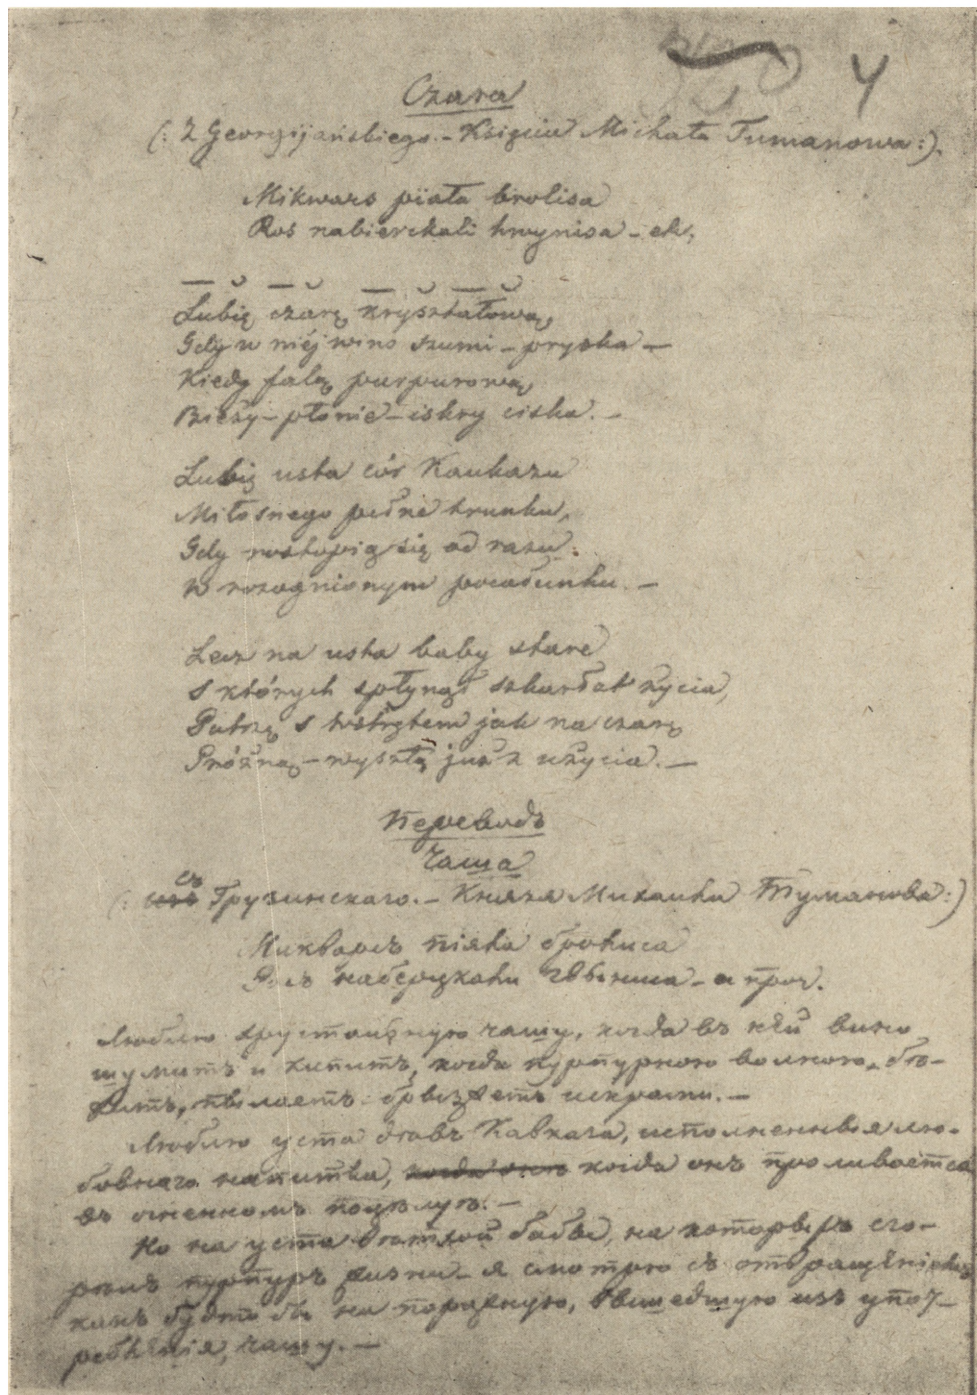 4
Czara
(: Z Georgijańskiego. – Księcia Michała Tumanowa :).
Mikwars piała brolisa
Ros nabierckali hwynisa – etc,
Lubię czarę kryształową,
Gdy w niéj wino szumi – pryska –
Kiedy falą purpurową,
Bieży – płonie – iskry ciska. –
Lubię usta cór Kaukazu
Miłosnego pełne trunku,
Gdy roztopią się od razu
W rozognionym pocałunku. –
Lecz na usta baby staré
S których spłynął szkarłat życia,
Patrzę s wstrętem jak na czarę
Próżną – wyszłą już z użycia. –
Переводъ
Чаша
(: съ Грузинскаго. – Князя Михаила Туманова :)
Микварсъ піяла бролиса
Росъ наберцкали гвыниса – и проч.
Люблю хрустальную чашу, когда въ ней вино
шумитъ и кипитъ, когда пурпурною волною, бѣ-
житъ, пылаетъ – брызжетъ искрами. –
Люблю уста дѣвъ Кавказа, исполненныя лю-
бовнаго напитка, когда онъ проливается
въ огненномъ поцѣлуѣ. –
Но на уста бабы, на которыхъ сго-
рѣлъ пурпуръ жизни – я смотрю съ отвращеніемъ
какъ будто бы на порожную, вышедшую изъ упот-
ребленія, чашу. –